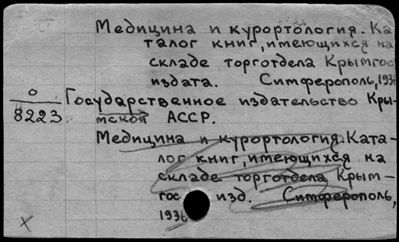 Медицина и курортология. Ка-
талог книг, имеющихся на
складе торготдела Крымгос
издата. Симферополь, 193
0
8223
Государственное издательство Кры-
мской АССР.
Медицина и курортология. Ката-
лог книг, имеющихся на
складе торготдела Крым-
гос изд. Симферополь,
1936
х